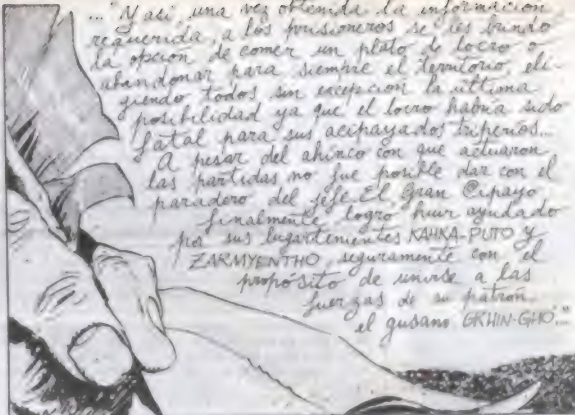 ..."Y así, una vez obtenida la información
requerida, a los prisioneros se les brindó
la opción de comer un plato de locro o
abandonar para siempre el territorio, eli-
giendo todos sin excepción la última
posibilidad ya que el locro habría sido
fatal para sus acipayados triperíos...
A pesar del ahinco con que actuaron
las partidas, no fue posible dar con el
paradero del jefe. El Gran Cipayo
finalmente logró huir ayudado
por sus lugartenientes KAHKA-PUTO y
ZARMYENTHO, seguramente con el
propósito de unirse a las
fuerzas de su patrón
el gusano GRHIN-GHO..."